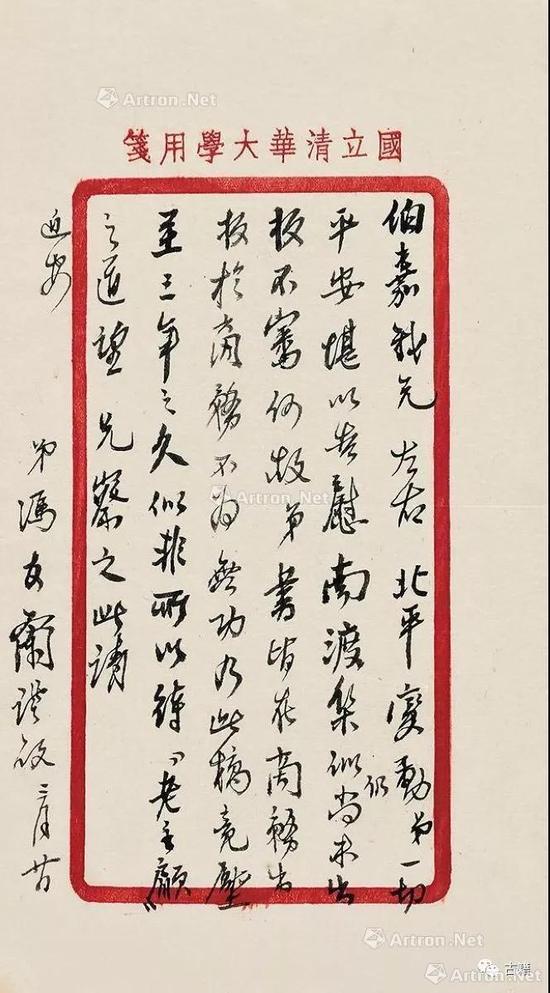 國立清華大學用箋
伯嘉我兄 左右 北平變動弟一切
平安堪以告慰南渡集似仍尚未出
板不審何故弟書皆在商務出
板於商務不為無功乃此稿竟壓
至三年之久似非所以待“老主顧”
之道望 兄察之此請
近安
弟馮友蘭謹啟 三月廿
Artron.Net
Artron.Net
Artron.Net
Artron.Net